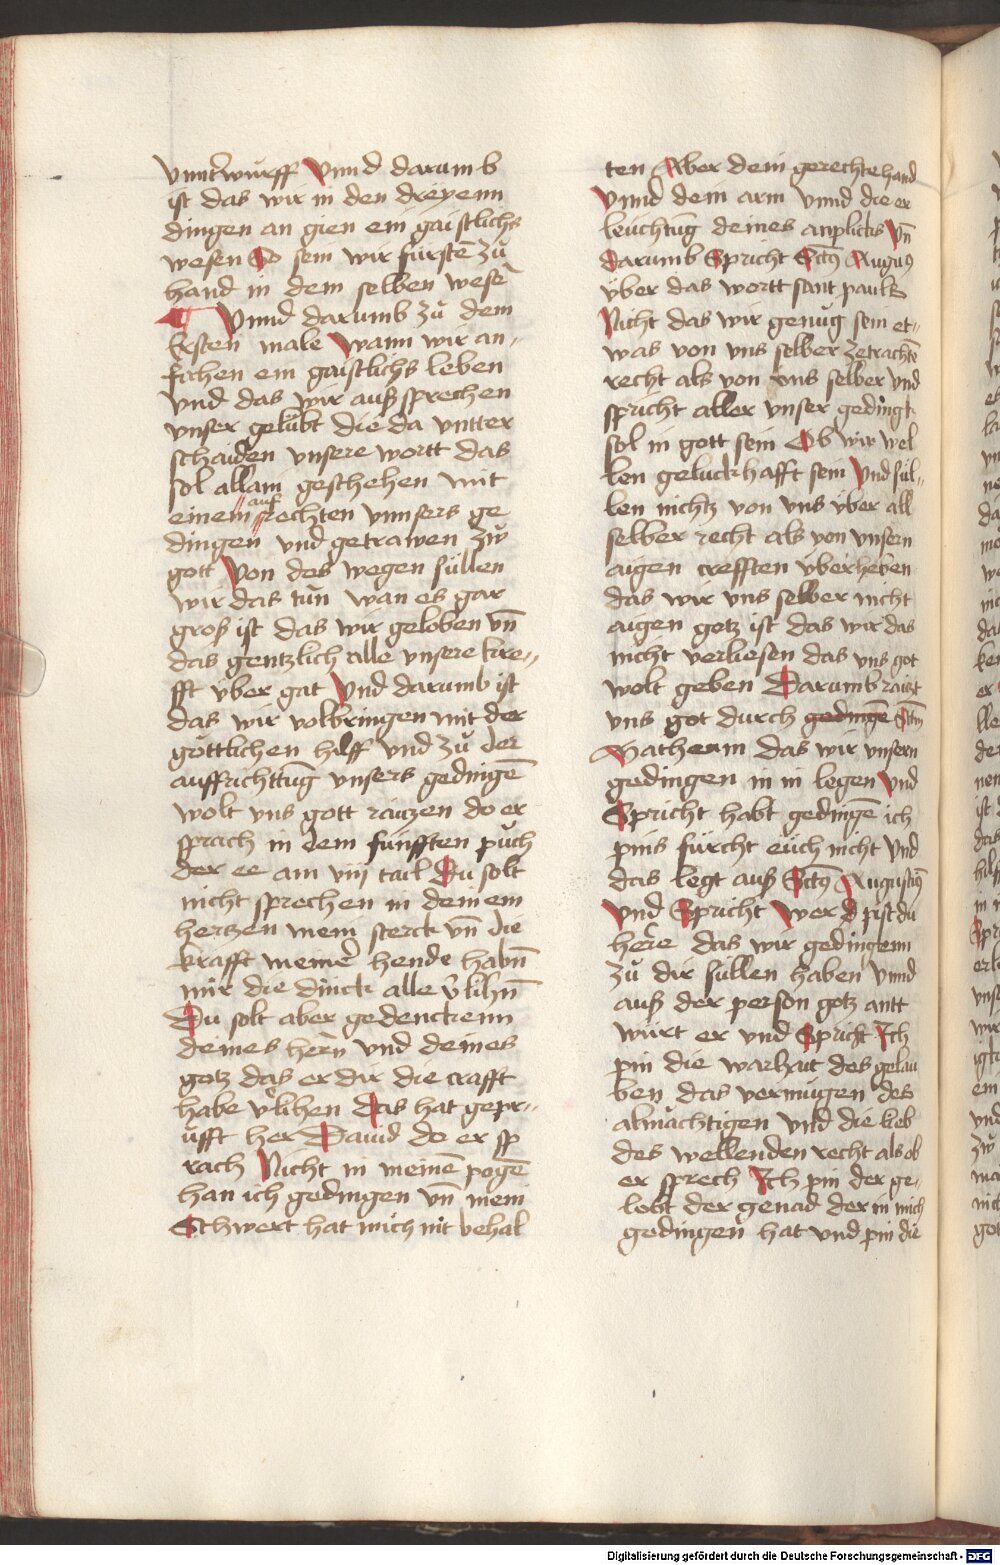 vnnterwurff Vnnd darumb
ist das wir in den dreyenn
dingen an gien ein gaistlichs
wesen So sein wir fürstē zů
hand in dem selben wesē
Vnnd darumb zů dem
Ersten male Wann wir an„
fachen ein gaistlichs leben
vnd das wir auß sprechen
vnser gelübt die da vntter
schaiden vnsere wortt das
sol allain geschehen mit
einem auf rechten vnnsers ge
dingen vnd getrawen zw
gott Von des wegen süllen
wir das tůn wan es gar
groß ist das wir geloben vn̄
das gentzlich alle vnsere kre„
fft über gat Vnd darumb ist
das wir volbringen mit der
göttlichen hilff vnd zů der
auffrichttūg vnsers gedingē
wolt vns gott raiczen do er
sprach in dem fünfften půch
der ee am viij tail Du solt
nicht sprechen in deinem
hertzen mein sterck vn̄ die
krafft meiner hende habn̄
mir die dinck alle v̓lihn̄
Du solt aber gedenckenn
deines hern vnd deines
gotz das er dir die crafft
habe v̓lihen Das hat gepr„
üfft her Dauid do er sp
rach Nicht in meinē pogē
han ich gedingen vn̄ mein
Schwert hat mich nit behal
ten Aber dein gerechte hand
Vnnd dem arm vnnd die er
leüchtūg deines anplicks Vn̄
darumb Spricht Sctꝰ Auguꝰ
über das wortt sant pauls
Nicht das wir genůg sein et„
was von vns selber zetrachtē
recht als von vns selber vnd
spricht aller vnser geding
sol in gott sein Ob wir wel
len geluckhafft sein Vnd sül„
len nichtz von vns über all
selber recht als von vnsern
aigen crefften überheben
das wir vns selber nicht
aigen getz ist das wir das
nicht verliesen das vns got
wolt geben Darumb raitzt
vns got durch gedingē Sctm̄
Matheum das wir vnsern
gedingen in in legen Vnd
Spricht habt gedingē ich
pins fürcht eüch nicht Vnd
das legt auß Sctꝰ Augustiꝰ
Vnd Spricht Wer d pist du
here das wir gedingenn
zů dir süllen haben vnnd
auß der person gotz antt
würt er vnd Spricht Ich
pin die warhait des gelau
ben das vermügen des
almächtigen vnd die lieb
des wellenden recht als ob
er sprech Ich pin der ge„
lobt der genad der in mich
gedingen hat vnd pin die
Digitalisierung gefördert durch die Deutsche Forschungsgemeinschaft - DFG